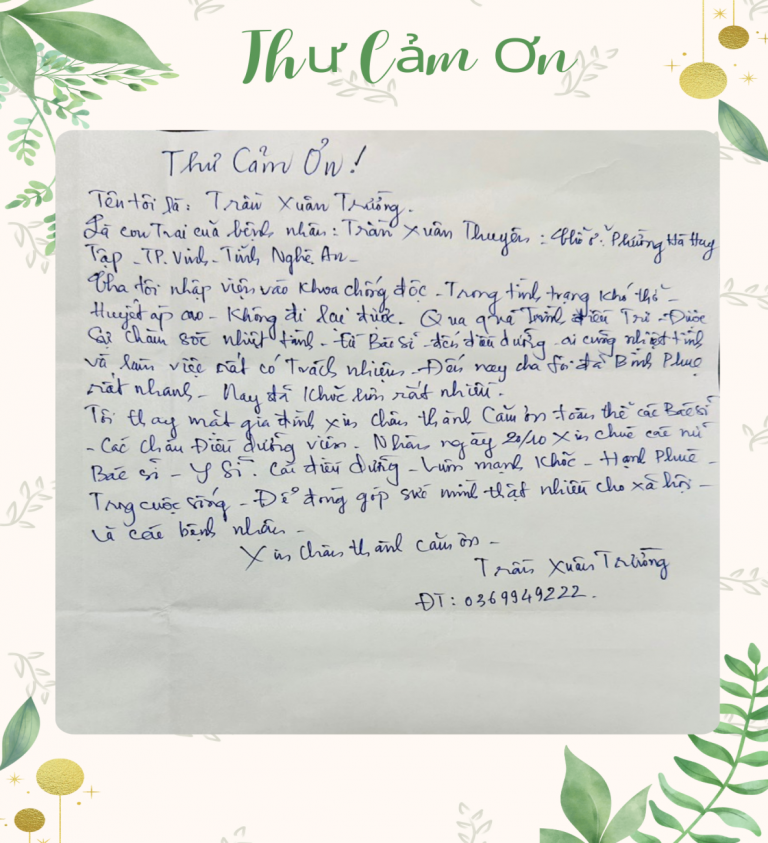 Thư Cảm Ơn
Thư Cảm Ơn!
Tên tôi là: Trần Xuân Trưởng.
Là con Trai của bệnh nhân: Trần Xuân Thuyên: Chỗ ở: Phường Hà Huy
Tập - TP. Vinh - Tỉnh Nghệ An -
Cha tôi nhập viện vào khoa chống độc - Trong tình trạng khó thở -
Huyết áp cao - Không đi lại được. Qua quá Trình điều Trị - Được
Sự chăm sóc nhiệt tình - Từ Bác sĩ - đến điều dưỡng - ai cũng nhiệt tình
và làm việc rất có Trách nhiệm - Đến nay cha tôi đã Bình Phục
rất nhanh - Nay đã khỏe hơn rất nhiều.
Tôi thay mặt gia đình xin chân thành Cảm ơn toàn thể các Bác sĩ
- Các cháu Điều dưỡng viên - Nhân ngày 20/10 Xin chúc các nữ
Bác sĩ - Y Sĩ. Các điều dưỡng - Luôn mạnh khỏe - Hạnh Phúc -
Trong cuộc sống - Để đóng góp sức mình thật nhiều cho xã hội -
và các bệnh nhân -
Xin chân thành cảm ơn -
Trần Xuân Trưởng
ĐT: 0369949222.